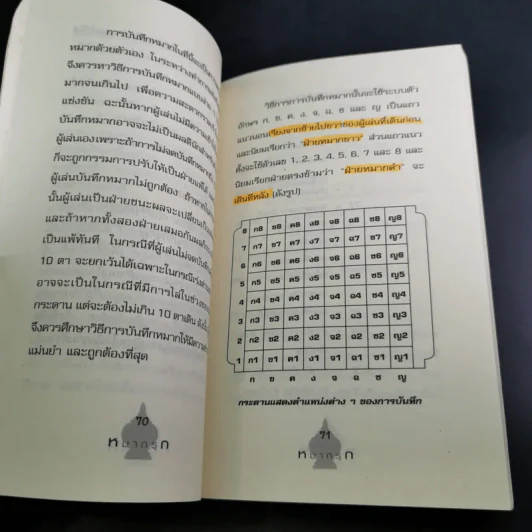 การบันทึกหมากในที่นี้จะเป็น
หมากด้วยตัวเอง ในระหว่างทำการ
จึงควรหาวิธีการบันทึกหมากแบบ
มากจนเกินไป เพื่อความสะดวก
แข่งขัน ฉะนั้นหากผู้เล่นไม่มีความ
บันทึกหมากอาจจะไม่เป็นผลดีนัก
ผู้เล่นเองเพราะถ้าการไม่จดบันทึก
ก็จะถูกกรรมการปรับให้เป็นฝ่ายแพ้
เล่นบันทึกหมากไม่ถูกต้อง ถ้าหาก
นั้นผู้เล่นเป็นฝ่ายชนะผลจะเปลี่ยน
และถ้าหากทั้งสองฝ่ายเสมอกันผล
เป็นแพ้ทันที ในกรณีที่ผู้เล่นไม่จดบันทึก
10 ตา จะยกเว้นได้เฉพาะในกรณีเร่ง
อาจจะเป็นในกรณีที่มีการไล่ในช่วง
กระดาน แต่จะต้องไม่เกิน 10 ตาเดิน ดังนั้น
จึงควรศึกษาวิธีการบันทึกหมากให้มีความ
แม่นยำ และถูกต้องที่สุด
70
หมากรุก
วิธีการการบันทึกหมากนั้นจะใช้ระบบตัว
อักษร ก, ข, ค, ง, จ, ฉ, ช และ ญ เป็นแถว
แนวนอนเรียงจากซ้ายไปขวาของผู้เล่นที่เดินก่อน
และนิยมเรียกว่า "ฝ่ายหมากขาว" ส่วนแถวแนว
ตั้งจะใช้ตัวเลข 1, 2, 3, 4, 5, 6, 7 และ 8 และ
นิยมเรียกฝ่ายตรงข้ามว่า "ฝ่ายหมากดำ" จะ
เดินทีหลัง (ดังรูป)
8 ก8 ข8 ค8 ง8 จ8 ฉ8 ช8 ญ8
7 ก7 ข7 ค7 ง7 จ7 ฉ7 ช7 ญ7
6 ก6 ข6 ค6 ง6 จ6 ฉ6 ช6 ญ6
5 ก5 ข5 ค5 ง5 จ5 ฉ5 ช5 ญ5
4 ก4 ข4 ค4 ง4 จ4 ฉ4 ช4 ญ4
3 ก3 ข3 ค3 ง3 จ3 ฉ3 ช3 ญ3
2 ก2 ข2 ค2 ง2 จ2 ฉ2 ช2 ญ2
1 ก1 ข1 ค1 ง1 จ1 ฉ1 ช1 ญ1
ก ข ค ง จ ฉ ช ญ
กระดานแสดงตำแหน่งต่าง ๆ ของการบันทึก
71
หมากรุก